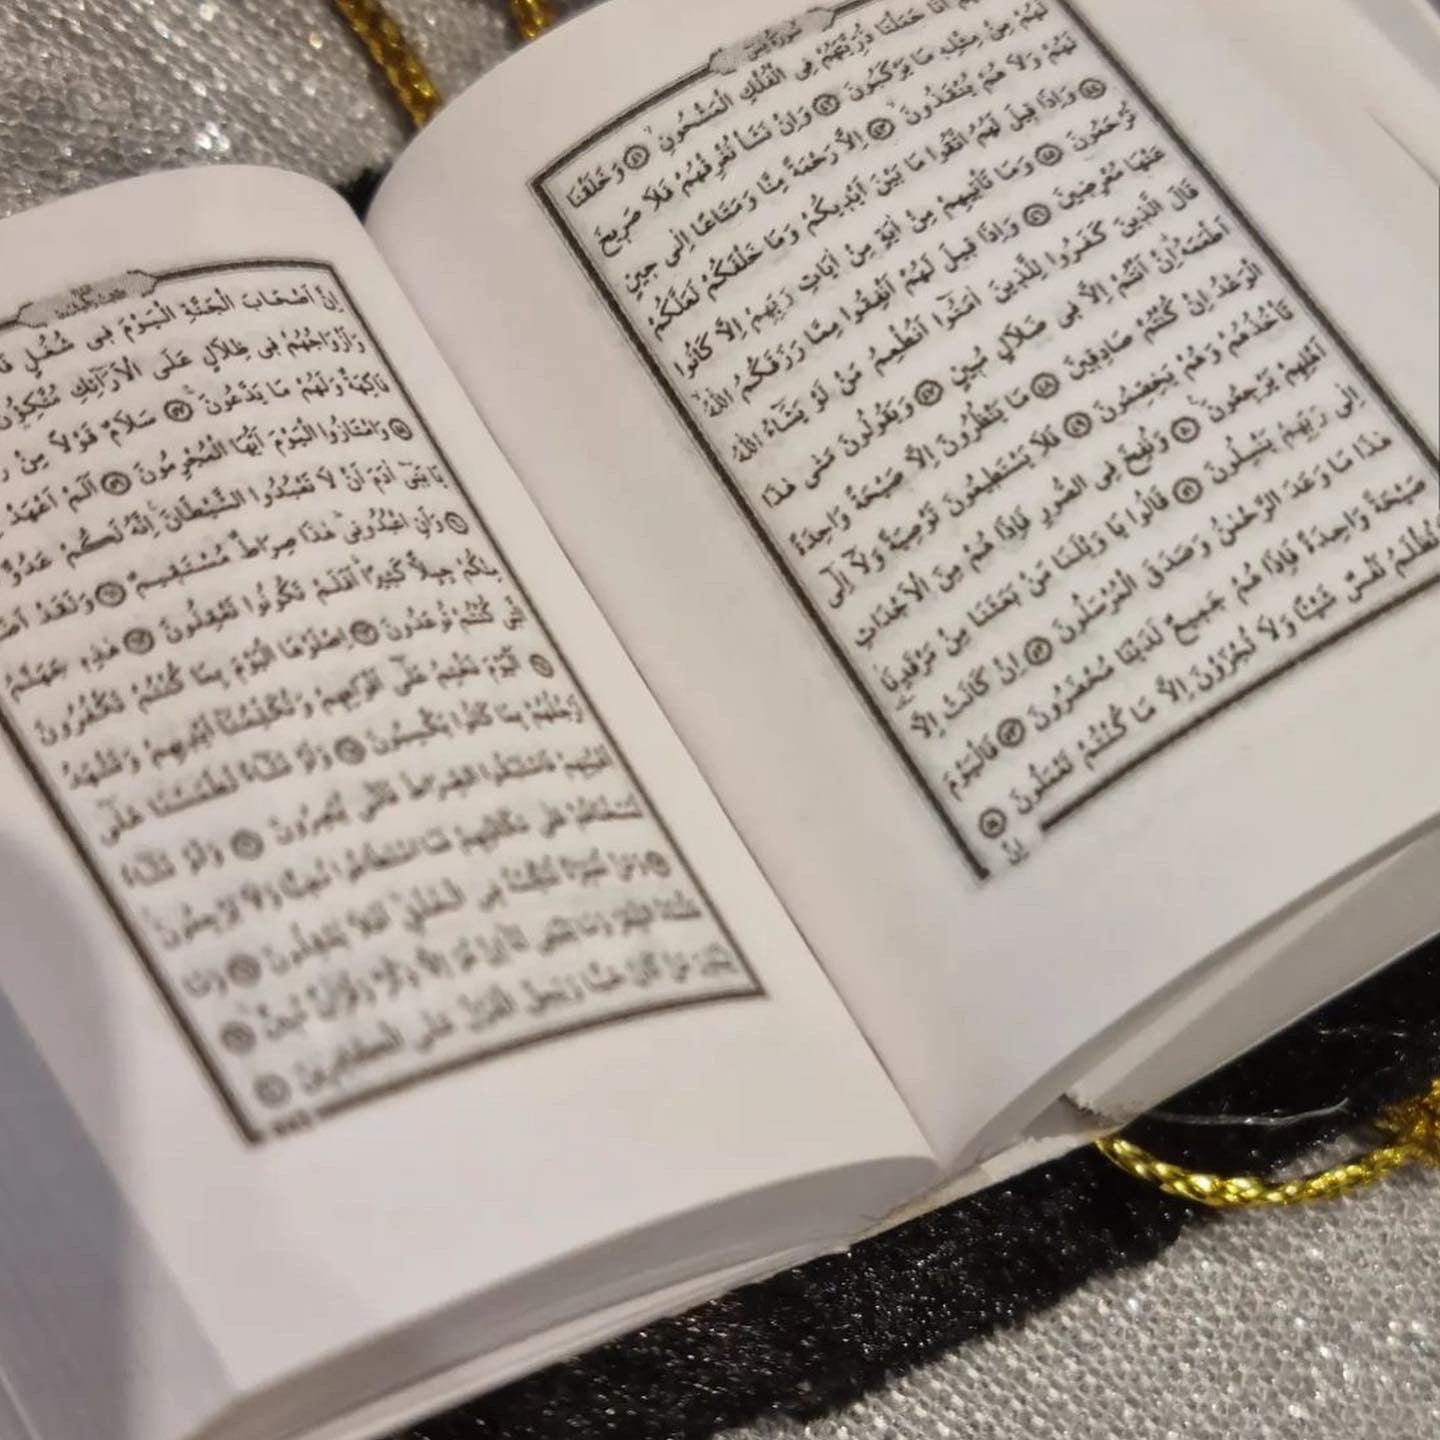 سُورَةُ يٰسٓ
اَنَّا حَمَلْنَا ذُرِّيَّتَهُمْ فِى الْفُلْكِ الْمَشْحُونِۙ ﴿٤١﴾ وَخَلَقْنَا
لَهُمْ مِنْ مِثْلِهٖ مَا يَرْكَبُونَ ﴿٤٢﴾ وَاِنْ نَشَأْ نُغْرِقْهُمْ فَلَا صَرٖيخَ
لَهُمْ وَلَا هُمْ يُنْقَذُونَۙ ﴿٤٣﴾ اِلَّا رَحْمَةً مِنَّا وَمَتَاعًا اِلٰى حٖينٍ
﴿٤٤﴾ وَاِذَا قٖيلَ لَهُمُ اتَّقُوا مَا بَيْنَ اَيْدٖيكُمْ وَمَا خَلْفَكُمْ لَعَلَّكُمْ
تُرْحَمُونَ ﴿٤٥﴾ وَمَا تَأْتٖيهِمْ مِنْ اٰيَةٍ مِنْ اٰيَاتِ رَبِّهِمْ اِلَّا كَانُوا
عَنْهَا مُعْرِضٖينَ ﴿٤٦﴾ وَاِذَا قٖيلَ لَهُمْ اَنْفِقُوا مِمَّا رَزَقَكُمُ اللّٰهُۙ
قَالَ الَّذٖينَ كَفَرُوا لِلَّذٖينَ اٰمَنُٓوا اَنُطْعِمُ مَنْ لَوْ يَشَٓاءُ اللّٰهُ
اَطْعَمَهُۗ اِنْ اَنْتُمْ اِلَّا فٖى ضَلَالٍ مُبٖينٍ ﴿٤٧﴾ وَيَقُولُونَ مَتٰى هٰذَا
الْوَعْدُ اِنْ كُنْتُمْ صَادِقٖينَ ﴿٤٨﴾ مَا يَنْظُرُونَ اِلَّا صَيْحَةً وَاحِدَةً
تَأْخُذُهُمْ وَهُمْ يَخِصِّمُونَ ﴿٤٩﴾ فَلَا يَسْتَطٖيعُونَ تَوْصِيَةً وَلَٓا اِلٰٓى
اَهْلِهِمْ يَرْجِعُونَ ﴿٥٠﴾ وَنُفِخَ فِى الصُّورِ فَاِذَا هُمْ مِنَ الْاَجْدَاثِ
اِلٰى رَبِّهِمْ يَنْسِلُونَ ﴿٥١﴾ قَالُوا يَا وَيْلَنَا مَنْ بَعَثَنَا مِنْ مَرْقَدِنَا
هٰذَا مَا وَعَدَ الرَّحْمٰنُ وَصَدَقَ الْمُرْسَلُونَ ﴿٥٢﴾ اِنْ كَانَتْ اِلَّا
صَيْحَةً وَاحِدَةً فَاِذَا هُمْ جَمٖيعٌ لَدَيْنَا مُحْضَرُونَ ﴿٥٣﴾ فَالْيَوْمَ
تُظْلَمُ نَفْسٌ شَيْئًا وَلَا تُجْزَوْنَ اِلَّا مَا كُنْتُمْ تَعْمَلُونَ ﴿٥٤﴾
اِنَّ
اِنَّ اَصْحَابَ الْجَنَّةِ الْيَوْمَ فٖى شُغُلٍ
وَاَزْوَاجُهُمْ فٖى ظِلَالٍ عَلَى الْاَرَٓائِكِ مُتَّكِؤُنَ
فَاكِهَةٌ وَلَهُمْ مَا يَدَّعُونَۚ ﴿٥٧﴾ سَلَامٌ قَوْلًا مِنْ
﴿٥٨﴾ وَامْتَازُوا الْيَوْمَ اَيُّهَا الْمُجْرِمُونَ ﴿٥٩﴾ اَلَمْ اَعْهَدْ
يَا بَنٖٓى اٰدَمَ اَنْ لَا تَعْبُدُوا الشَّيْطَانَۚ اِنَّهُ لَكُمْ عَدُوٌّ
﴿٦٠﴾ وَاَنِ اعْبُدُونٖى هٰذَا صِرَاطٌ مُسْتَقٖيمٌ ﴿٦١﴾ وَلَقَدْ
مِنْكُمْ جِبِلًّا كَثٖيرًا اَفَلَمْ تَكُونُوا تَعْقِلُونَ ﴿٦٢﴾ هٰذِهٖ جَهَنَّمُ
الَّتٖى كُنْتُمْ تُوعَدُونَ ﴿٦٣﴾ اِصْلَوْهَا الْيَوْمَ بِمَا كُنْتُمْ تَكْفُرُونَ
﴿٦٤﴾ اَلْيَوْمَ نَخْتِمُ عَلٰٓى اَفْوَاهِهِمْ وَتُكَلِّمُنَٓا اَيْدٖيهِمْ وَتَشْهَدُ
اَرْجُلُهُمْ بِمَا كَانُوا يَكْسِبُونَ ﴿٦٥﴾ وَلَوْ نَشَٓاءُ لَطَمَسْنَا عَلٰٓى
اَعْيُنِهِمْ فَاسْتَبَقُوا الصِّرَاطَ فَاَنّٰى يُبْصِرُونَ ﴿٦٦﴾ وَلَوْ نَشَٓاءُ
لَمَسَخْنَاهُمْ عَلٰى مَكَانَتِهِمْ فَمَا اسْتَطَاعُوا مُضِيًّا وَلَا يَرْجِعُونَ
﴿٦٧﴾ وَمَنْ نُعَمِّرْهُ نُنَكِّسْهُ فِى الْخَلْقِ اَفَلَا يَعْقِلُونَ ﴿٦٨﴾ وَمَا
عَلَّمْنَاهُ الشِّعْرَ وَمَا يَنْبَغٖى لَهُ اِنْ هُوَ اِلَّا ذِكْرٌ وَقُرْاٰنٌ مُبٖينٌ ﴿٦٩﴾
لِيُنْذِرَ مَنْ كَانَ حَيًّا وَيَحِقَّ الْقَوْلُ عَلَى الْكَافِرٖينَ ﴿٧٠﴾